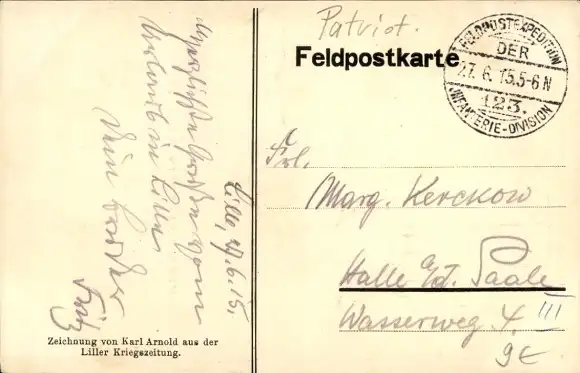 Patriot.
Feldpostkarte
FELDPOSTEXPEDITION
DER
27.6.15.5-6N
123.
INFANTERIE-DIVISION
Lille, 27.6.15.
Herzlichste Grüße vom
Urlaub in Lille
Dein Bruder
Fritz
Frl.
Marg. Kerckow
Halle a/d. Saale
Wasserweg 4. III
9€
Zeichnung von Karl Arnold aus der
Liller Kriegszeitung.